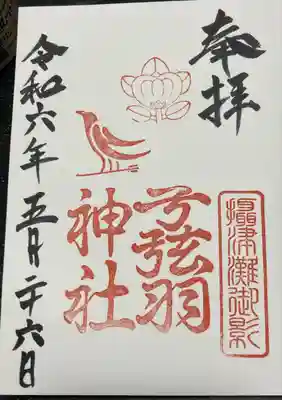 奉拝
攝津灘御影
弓弦羽
神社
令和六年五月二十六日